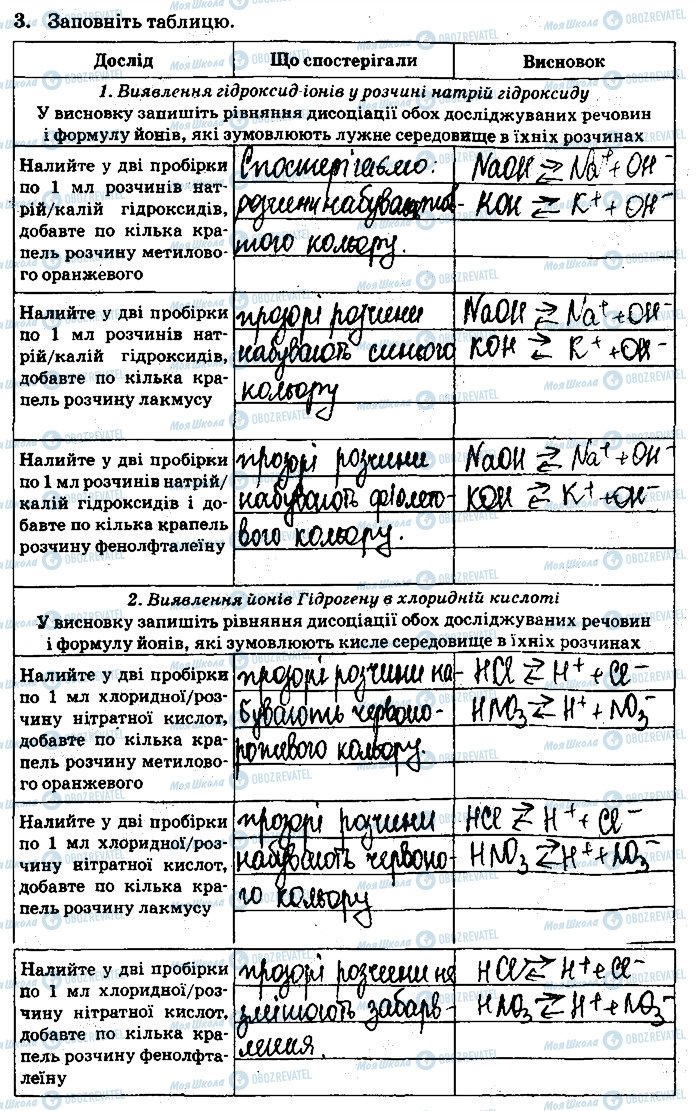 3. Заповніть таблицю.
Дослід Що спостерігали Висновок
1. Виявлення гідроксид-іонів у розчині натрій гідроксиду
У висновку запишіть рівняння дисоціації обох досліджуваних речовин
і формулу йонів, які зумовлюють лужне середовище в їхніх розчинах
Налийте у дві пробірки
по 1 мл розчинів нат-
рій/калій гідроксидів,
добавте по кілька кра-
пель розчину метилово-
го оранжевого
Спостерігаємо:
розчини набувають жов-
того кольору.
NaOH ⇄ Na⁺ + OH⁻
KOH ⇄ K⁺ + OH⁻
Налийте у дві пробірки
по 1 мл розчинів нат-
рій/калій гідроксидів,
добавте по кілька кра-
пель розчину лакмусу
прозорі розчини
набувають синього
кольору
NaOH ⇄ Na⁺ + OH⁻
KOH ⇄ K⁺ + OH⁻
Налийте у дві пробірки
по 1 мл розчинів натрій/
калій гідроксидів і до-
бавте по кілька крапель
розчину фенолфталеїну
прозорі розчини
набувають фіолето-
вого кольору.
NaOH ⇄ Na⁺ + OH⁻
KOH ⇄ K⁺ + OH⁻
2. Виявлення йонів Гідрогену в хлоридній кислоті
У висновку запишіть рівняння дисоціації обох досліджуваних речовин
і формулу йонів, які зумовлюють кисле середовище в їхніх розчинах
Налийте у дві пробірки
по 1 мл хлоридної/роз-
чину нітратної кислот,
добавте по кілька кра-
пель розчину метилово-
го оранжевого
прозорі розчини на-
бувають червоно-
рожевого кольору.
HCl ⇄ H⁺ + Cl⁻
HNO₃ ⇄ H⁺ + NO₃⁻
Налийте у дві пробірки
по 1 мл хлоридної/роз-
чину нітратної кислот,
добавте по кілька кра-
пель розчину лакмусу
прозорі розчини
набувають червоно-
го кольору
HCl ⇄ H⁺ + Cl⁻
HNO₃ ⇄ H⁺ + NO₃⁻
Налийте у дві пробірки
по 1 мл хлоридної/роз-
чину нітратної кислот,
добавте по кілька кра-
пель розчину фенолфта-
леїну
прозорі розчини не
змінюють забарв-
лення.
HCl ⇄ H⁺ + Cl⁻
HNO₃ ⇄ H⁺ + NO₃⁻